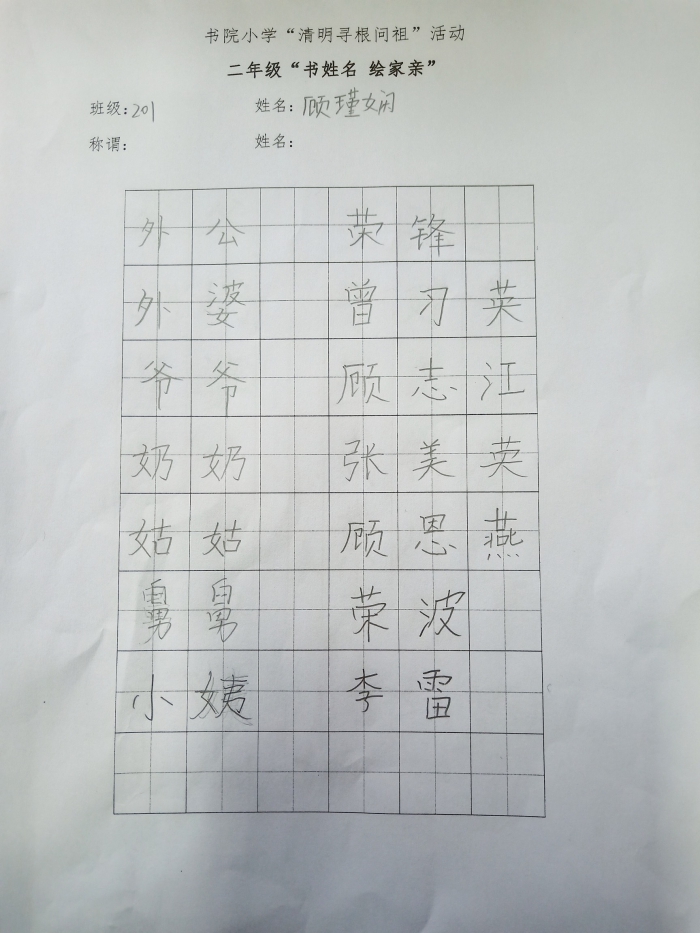 书院小学“清明寻根问祖”活动
二年级“书姓名 绘家亲”
班级：201 姓名：顾瑾娴
称谓： 姓名：
外公 荣锋
外婆 曾习英
爷爷 顾志江
奶奶 张美英
姑姑 顾恩燕
舅舅 荣波
小姨 李雷